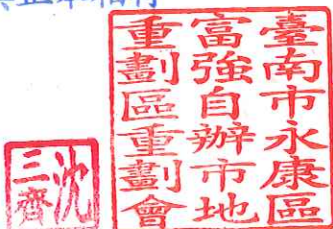 臺南市永康區
富強自辦市地
重劃區重劃會
沈
三齊